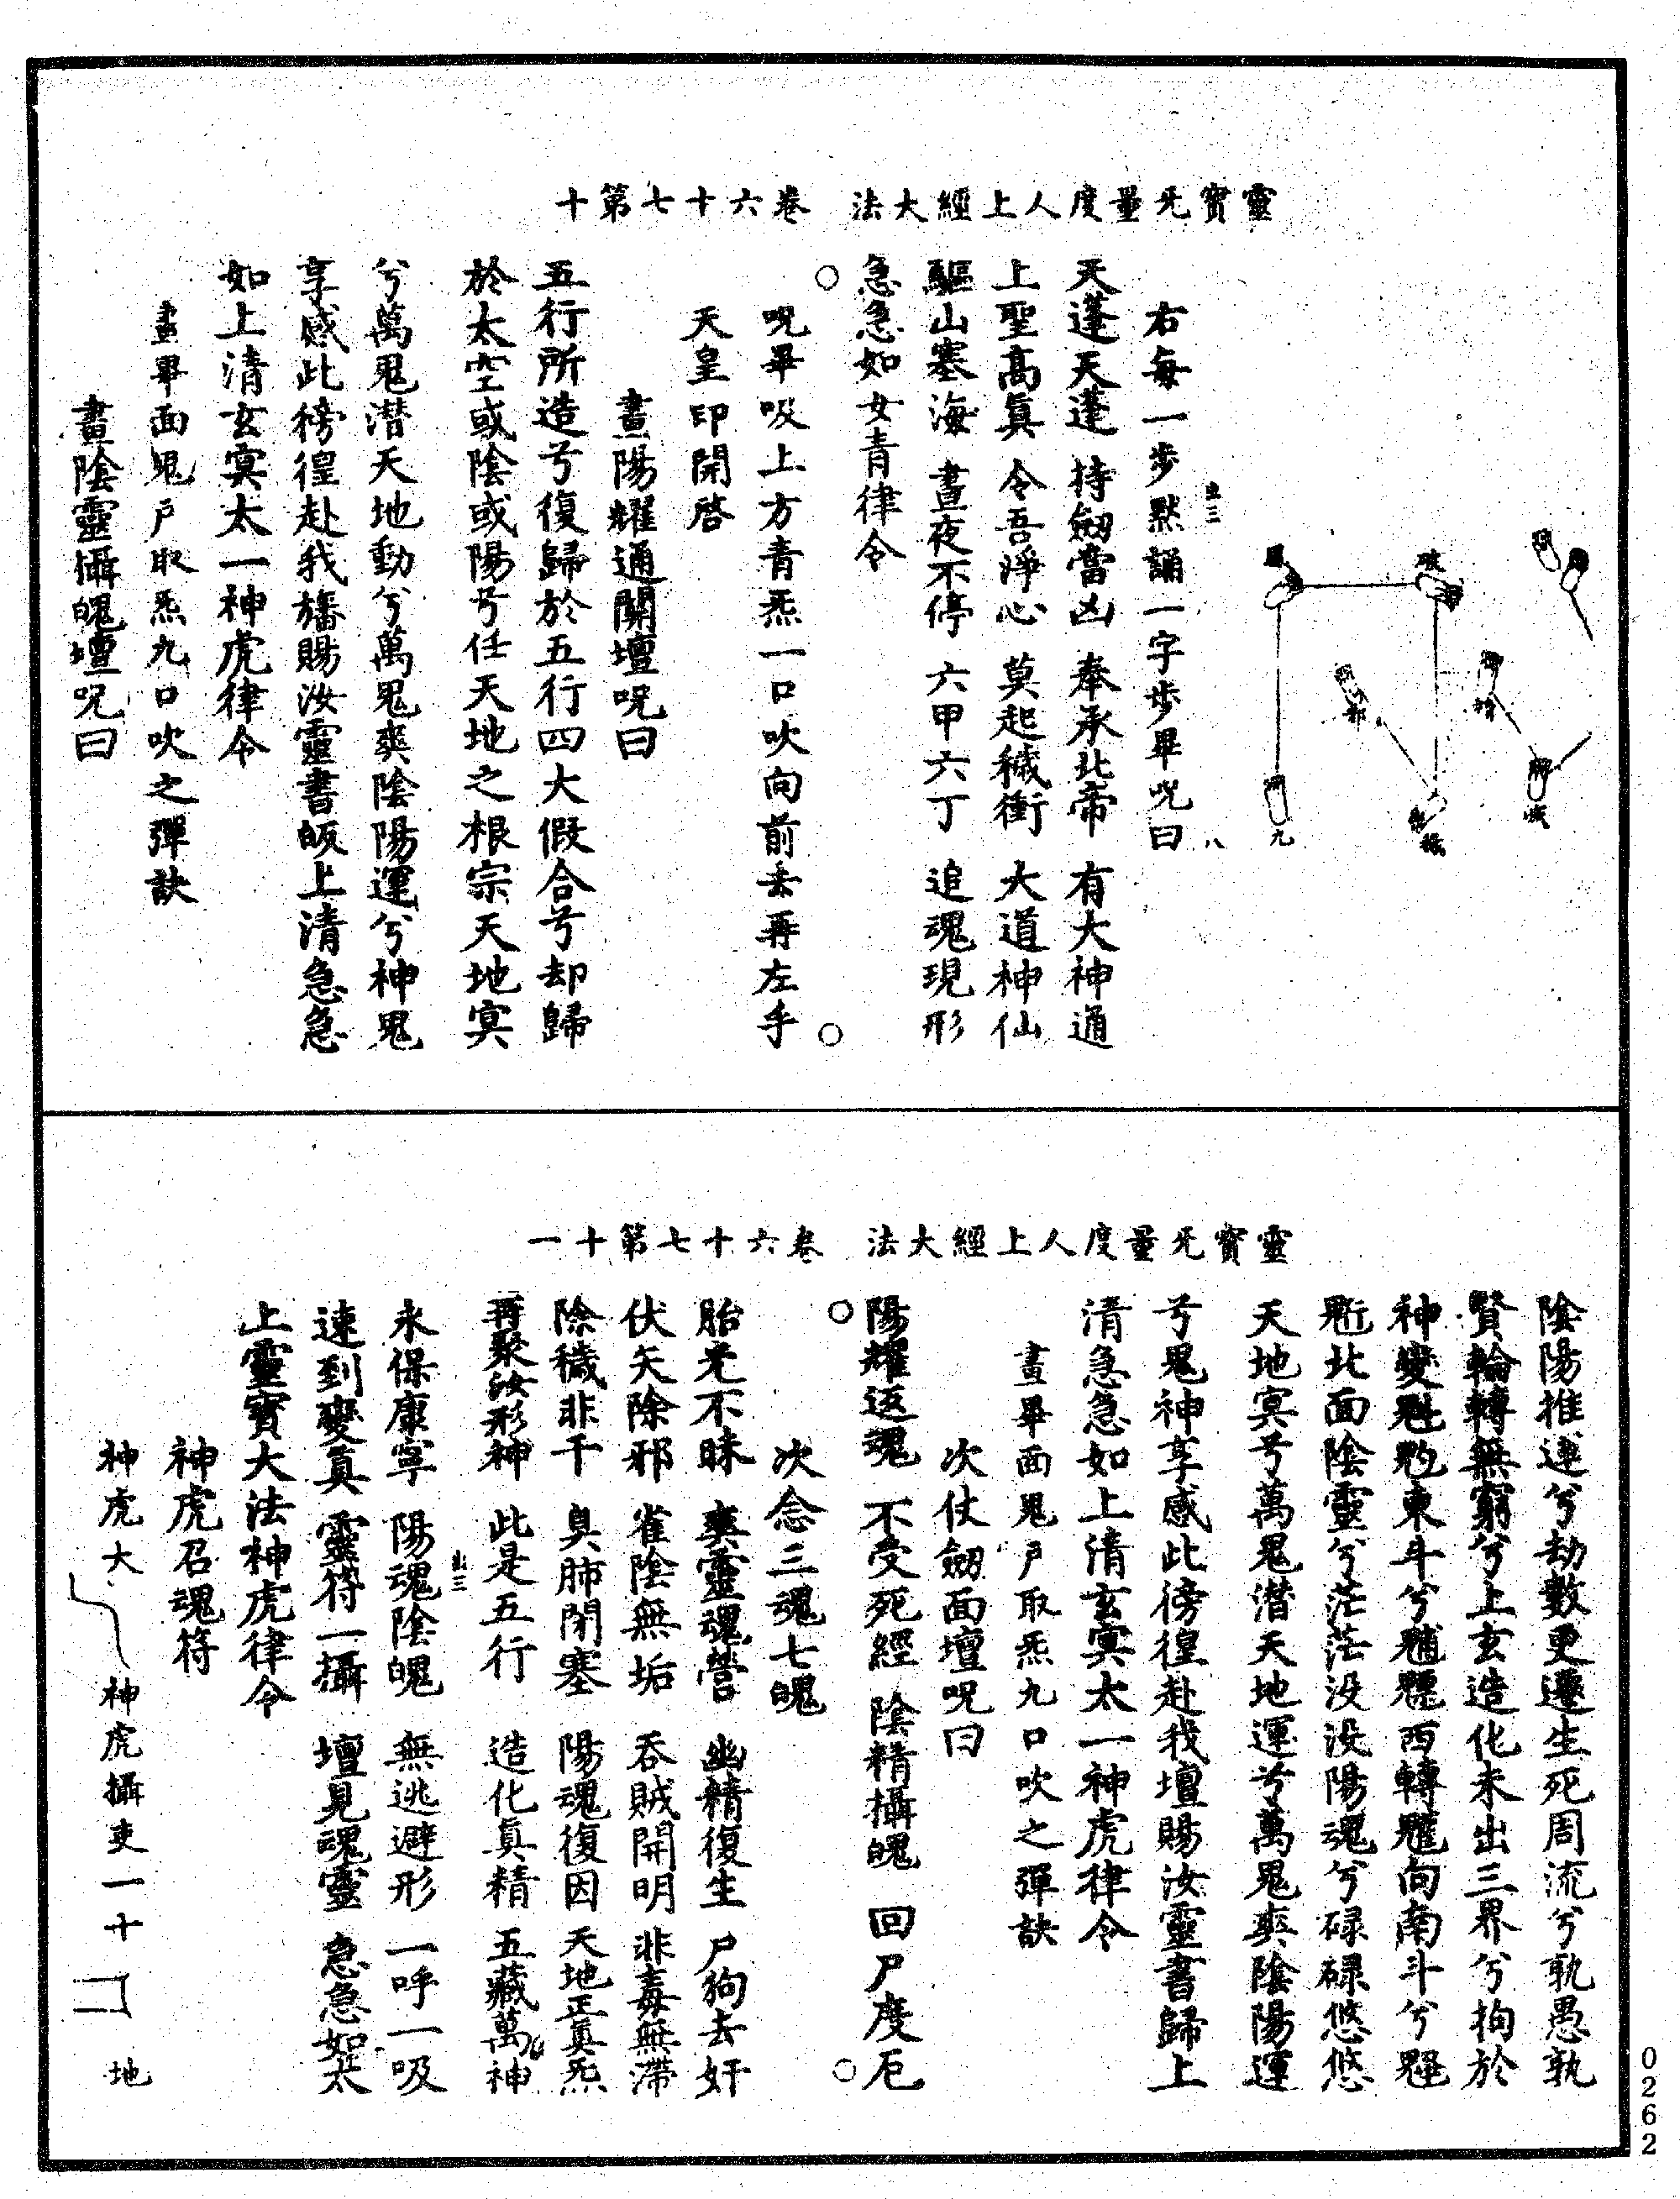 靈寶无量度人上經大法　卷六十七第十
右每一步默誦一字步畢呪曰
天蓬天蓬　持劒當凶　奉承北帝　有大神通
上聖高眞　令吾淨心　莫起穢衝　大道神仙
驅山塞海　晝夜不停　六甲六丁　追魂現形
急急如女青律令
呪畢吸上方青炁一口吹向前去再左手
天皇印開啓
畫陽耀通關壇呪曰
五行所造兮復歸於五行四大假合兮却歸
於太空或陰或陽兮任天地之根宗天地冥
兮萬鬼潛天地動兮萬鬼爽陰陽運兮神鬼
享感此徬徨赴我旛賜汝靈書皈上清急急
如上清玄冥太一神虎律令
畫畢面鬼戶取炁九口吹之彈訣
畫陰靈攝魄壇呪曰
靈寶无量度人上經大法　卷六十七第十一
陰陽推運兮劫數更遷生死周流兮孰愚孰
賢輪轉無窮兮上玄造化未出三界兮拘於
神變魁魀東斗兮魓魒西轉魒向南斗兮魓
魁北面陰靈兮茫茫没没陽魂兮碌碌悠悠
天地冥兮萬鬼潛天地運兮萬鬼爽陰陽運
兮鬼神享感此徬徨赴我壇賜汝靈書歸上
清急急如上清玄冥太一神虎律令
畫畢面鬼戶取炁九口吹之彈訣
次仗劒面壇呪曰
陽耀返魂　不受死經　陰精攝魄　回尸度厄
次念三魂七魄
胎光不昧　爽靈魂營　幽精復生　尸狗去奸
伏矢除邪　雀陰無垢　吞賊開明　非毒無滯
除穢非干　臭肺閉塞　陽魂復因　天地正眞炁
再聚汝形神　此是五行　造化眞精　五藏萬神
永保康寧　陽魂陰魄　無逃避形　一呼一吸
速到變眞　靈符一攝　壇見魂靈　急急如太
上靈寶大法神虎律令
神虎召魂符
神虎大　神虎攝吏一十　地
0262